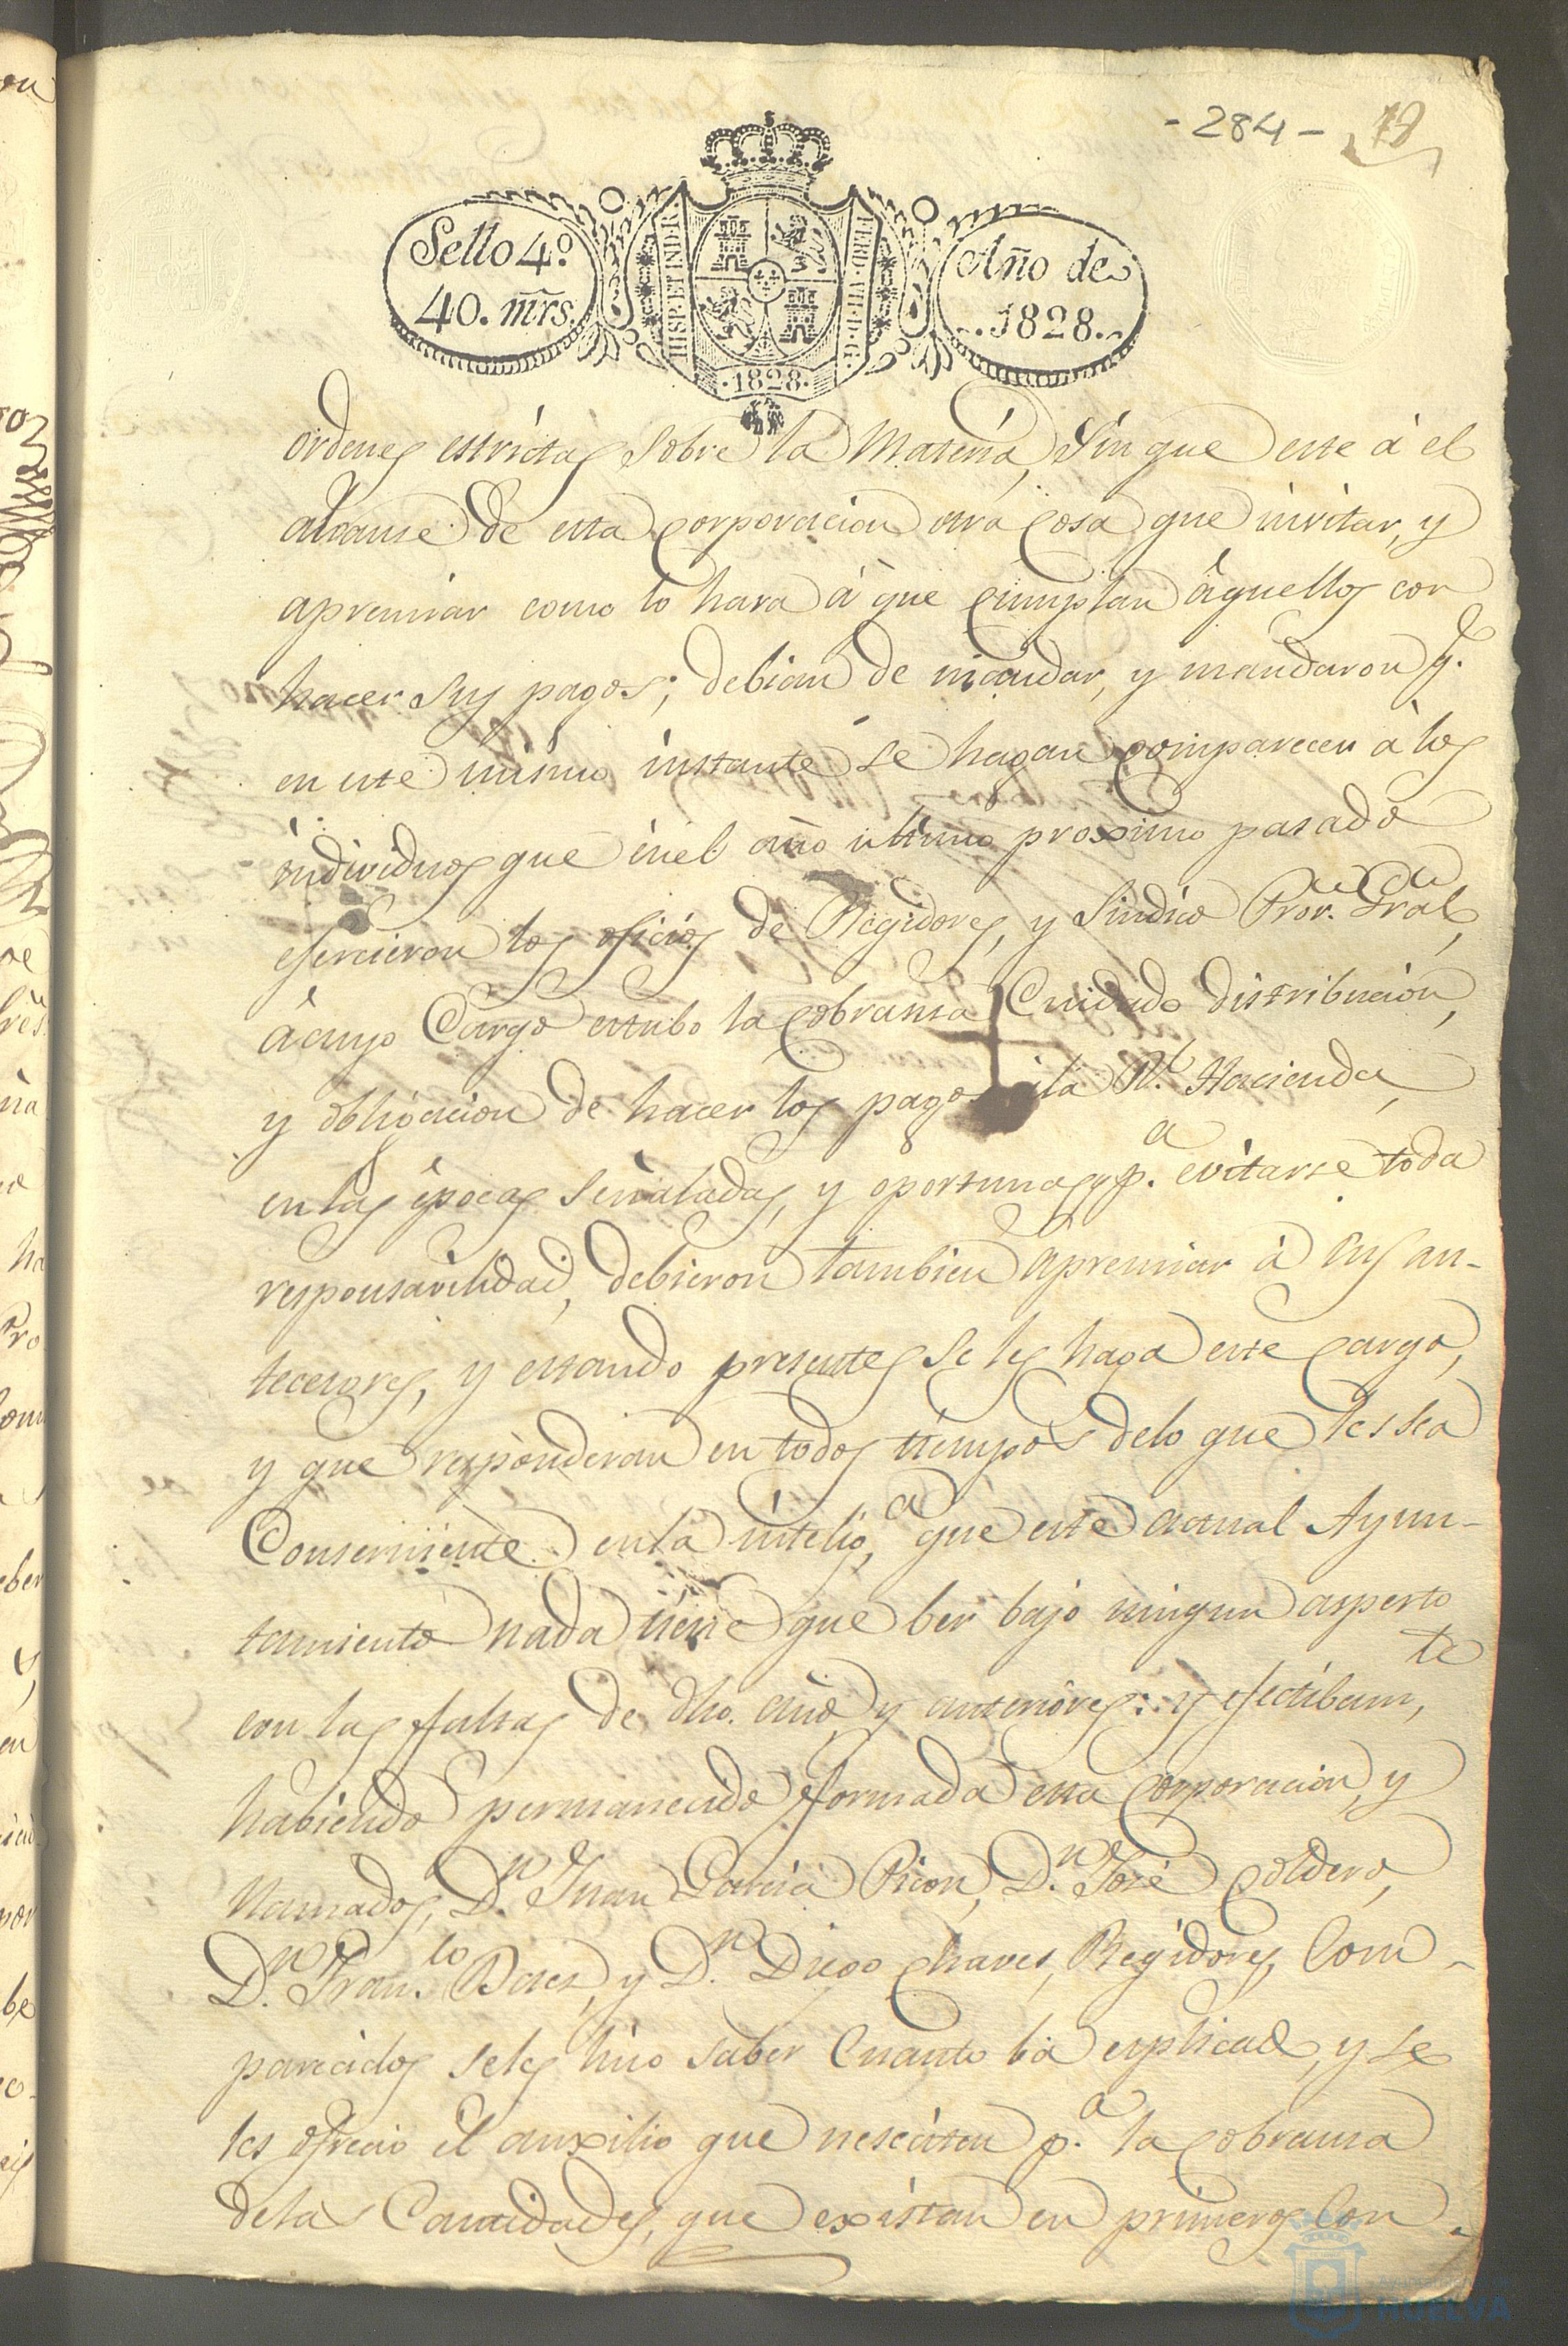 - 284 - 19
Sello 4º
40. mrs.
HISP. ET IND. R.
FERD. VII. D. G.
Año de
1828.
·1828·
ordenes estrictas sobre la Materia, sin que este á el
alcanse de esta corporacion otra cosa que invitar, y
apremiar como lo hara á que cumplan aquellos con
hacer sus pagos; debian de mandar, y mandaron q.
en este mismo instante se hagan comparecer á los
individuos que en el año ultimo proximo pasado
ejercieron los oficios de Regidores, y Sindico Pror. Gral,
á cuyo Cargo estubo la cobransa Cuidado distribucion,
y obligacion de hacer los pagos á la Rl. Hacienda,
en las épocas señaladas, y oportunas y p.a evitarse toda
responsavilidad, debieron tambien apremiar á sus an-
tecesores, y estando presentes se les haga este cargo,
y que responderan en todos tiempos de lo que les sea
Conserniente en la intelig.a que este actual Ayun-
tamiento nada tiene que ber bajo ningun aspecto
con las faltas de dho. año, y anteriores: y efectibam.te,
habiendo permanecido formada esta corporacion, y
llamados, D.n Juan Garcia Picon, D.n José Coldero,
D.n Fran.co Baes, y D.n Diego Chaves, Regidores, Com-
parecidos se les hiso saber Cuanto ba esplicado, y se
les ofrecio el auxilio que nesesiten p.a la cobransa
de las Cantidades, que existan en primeros Con-
HUELVA